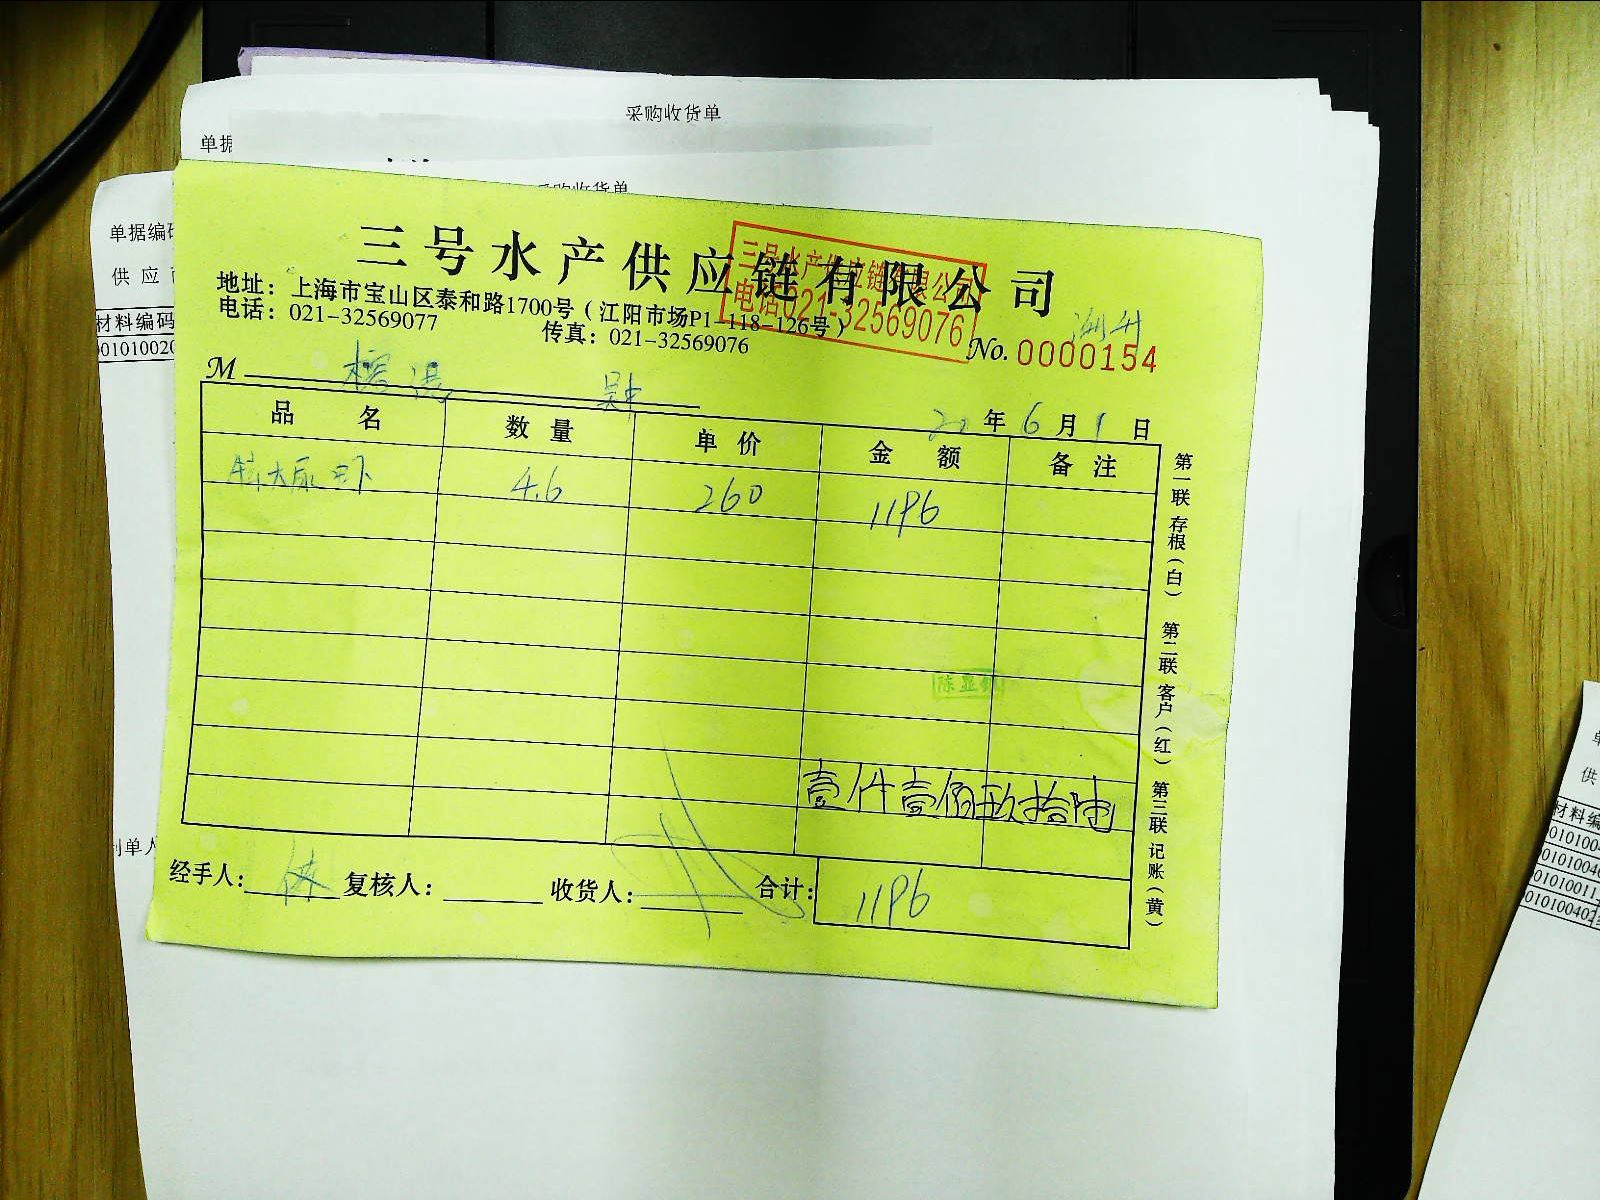 采购收货单
单据
采购收货单
单据编码
供应商
材料编码
01010020
三号水产供应链有限公司
三号水产供应链有限公司
电话021-32569076
地址：上海市宝山区泰和路1700号（江阳市场P1-118-126号）
电话：021-32569077 传真：021-32569076
No. 0000154
M
20年6月1日
品名 数量 单价 金额 备注
特大尿虾 4.6 260 1196
壹仟壹佰玖拾陆
经手人： 复核人： 收货人： 合计：1196
第一联 存根（白） 第二联 客户（红） 第三联 记账（黄）
制单人
单
供
材料编
010100
0101004
01010011
01010040